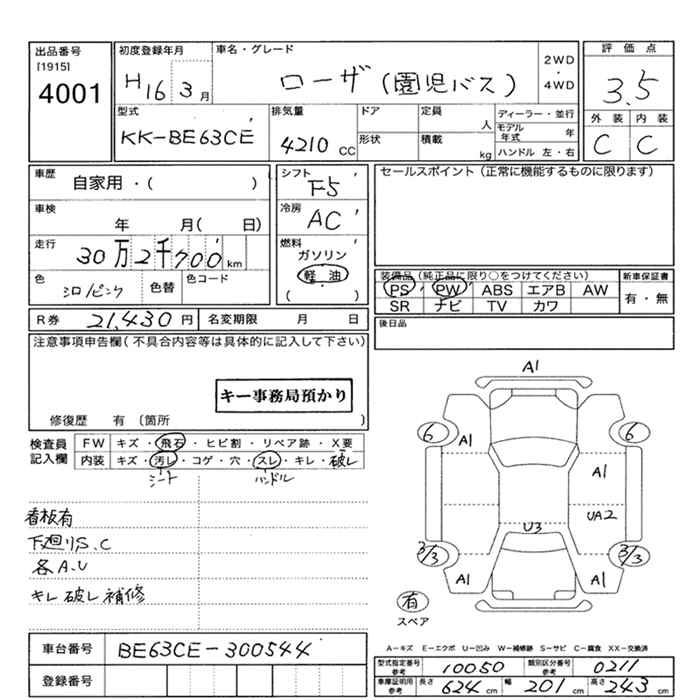 出品番号
[1915]
4001
初度登録年月
H16 3月
車名・グレード
ローザ(園児バス)
2WD
・
4WD
評価点
3.5
外装 内装
C C
型式
KK-BE63CE
排気量
4210 CC
ドア
形状
定員
人
積載
kg
ディーラー・並行
モデル年式 年
ハンドル 左・右
車歴
自家用・( )
車検
年 月( 日)
走行
30万2千700 km
色
シロ/ピンク
色替
色コード
シフト
F5
冷房
AC
燃料
ガソリン
軽・油
( )
セールスポイント(正常に機能するものに限ります)
装備品(純正品に限り○をつけてください)
PS PW ABS エアB AW
SR ナビ TV カワ
新車保証書
有・無
R券 21,430円
名変期限 月 日
後日品
注意事項申告欄(不具合内容等は具体的に記入して下さい)
キー事務局預かり
修復歴 有 〔箇所 〕
検査員
記入欄
FW キズ・飛石・ヒビ割・リペア跡・X要
内装 キズ・汚レ・コゲ・穴・スレ・キレ・破レ
シート ハンドル
看板有
下廻りS.C
各A.U
キレ 破レ 補修
A1
6 6
A1 A1
UA2
U3
3/3 3/3
A1 A1
有
スペア
A-キズ E-エクボ U-凹み W-補修跡 S-サビ C-腐食 XX-交換済
車台番号
BE63CE-300544
登録番号
型式指定番号 参考 10050
類別区分番号 参考 0211
車庫証明用 参考 長さ 624 cm 幅 201 cm 高さ 243 cm